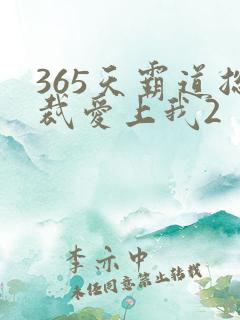 365天霸道总
裁爱上我2
李亦中
未经同意禁止转载